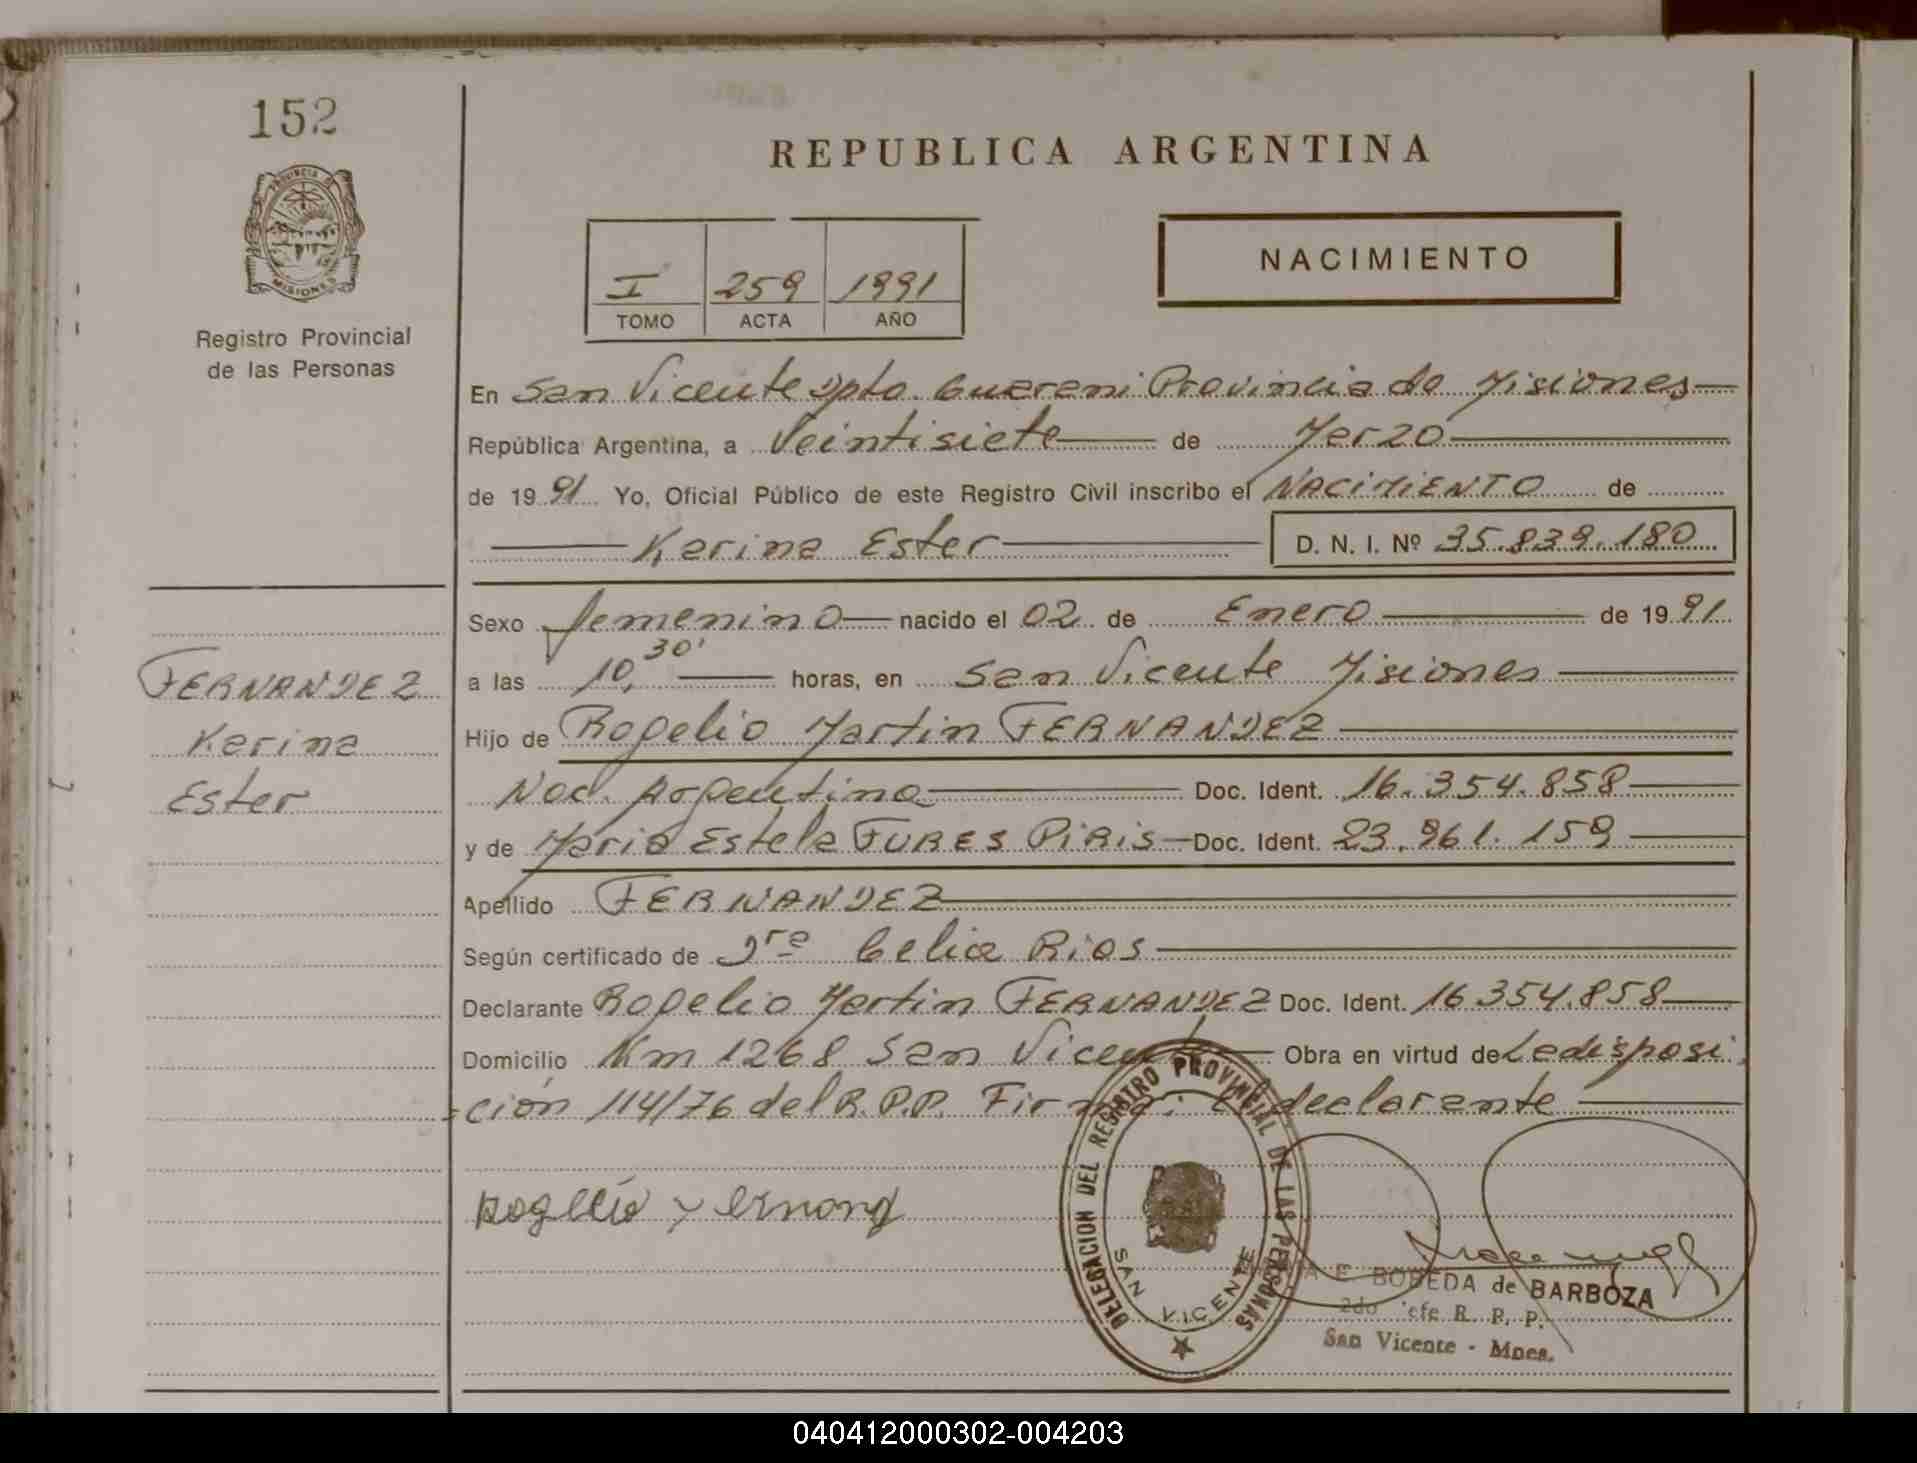 152
REPUBLICA ARGENTINA
PROVINCIA DE
MISIONES
Registro Provincial
de las Personas
I 259 1991
TOMO ACTA AÑO
NACIMIENTO
En San Vicente Dpto. Guarani Provincia de Misiones
República Argentina, a Veintisiete de Marzo
de 1991 Yo, Oficial Público de este Registro Civil inscribo el NACIMIENTO de
Karina Ester D. N. I. Nº 35.839.180
Sexo femenino nacido el 02 de Enero de 1991
a las 10,30' horas, en San Vicente Misiones
Hijo de Rogelio Martin FERNANDEZ
Nac. Argentina Doc. Ident. 16.354.858
y de Maria Estela FURES PIRIS Doc. Ident. 23.961.159
Apellido FERNANDEZ
Según certificado de Dra Celia Rios
Declarante Rogelio Martin FERNANDEZ Doc. Ident. 16.354.858
Domicilio Km 1268 San Vicente Obra en virtud de La disposi
ción 114/76 del R.P.P. Firma: el declarante
FERNANDEZ
Karina
Ester
DELEGACION DEL REGISTRO PROVINCIAL DE LAS PERSONAS
SAN VICENTE
E BOBEDA de BARBOZA
2do Jefe R. P. P.
San Vicente - Mnes.
040412000302-004203